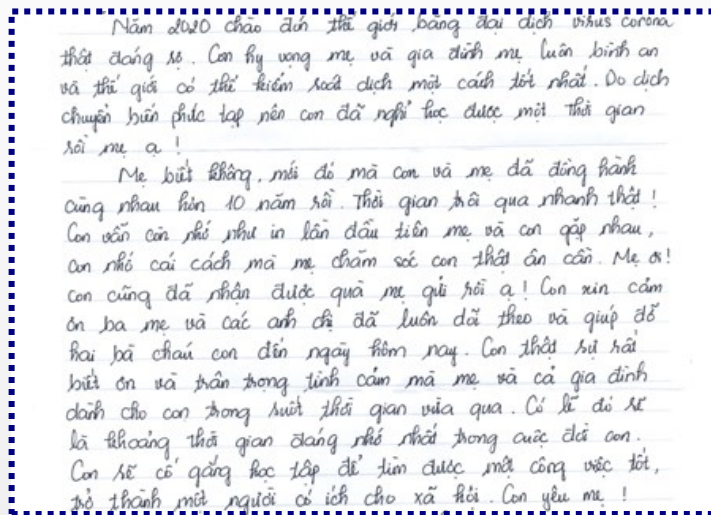 Năm 2020 chào đón thế giới bằng đại dịch virus corona
thật đáng sợ. Con hy vọng mẹ và gia đình mẹ luôn bình an
và thế giới có thể kiểm soát dịch một cách tốt nhất. Do dịch
chuyển biến phức tạp nên con đã nghỉ học được một thời gian
rồi mẹ ạ !
Mẹ biết không, mới đó mà con và mẹ đã đồng hành
cùng nhau hơn 10 năm rồi. Thời gian trôi qua nhanh thật !
Con vẫn còn nhớ như in lần đầu tiên mẹ và con gặp nhau,
con nhớ cái cách mà mẹ chăm sóc con thật ân cần. Mẹ ơi!
Con cũng đã nhận được quà mẹ gửi rồi ạ ! Con xin cảm
ơn ba mẹ và các anh chị đã luôn dõi theo và giúp đỡ
hai bà cháu con đến ngày hôm nay. Con thật sự rất
biết ơn và trân trọng tình cảm mà mẹ và cả gia đình
dành cho con trong suốt thời gian vừa qua. Có lẽ đó sẽ
là khoảng thời gian đáng nhớ nhất trong cuộc đời con.
Con sẽ cố gắng học tập để tìm được một công việc tốt,
trở thành một người có ích cho xã hội. Con yêu mẹ !